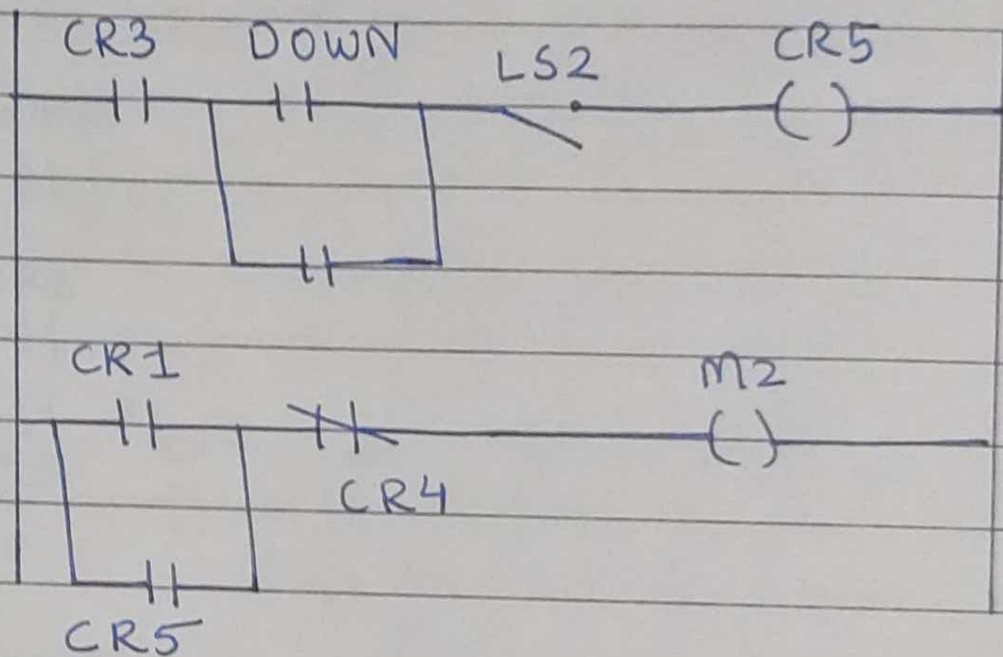 CR3 DOWN LS2 CR5
CR1 M2
CR4
CR5